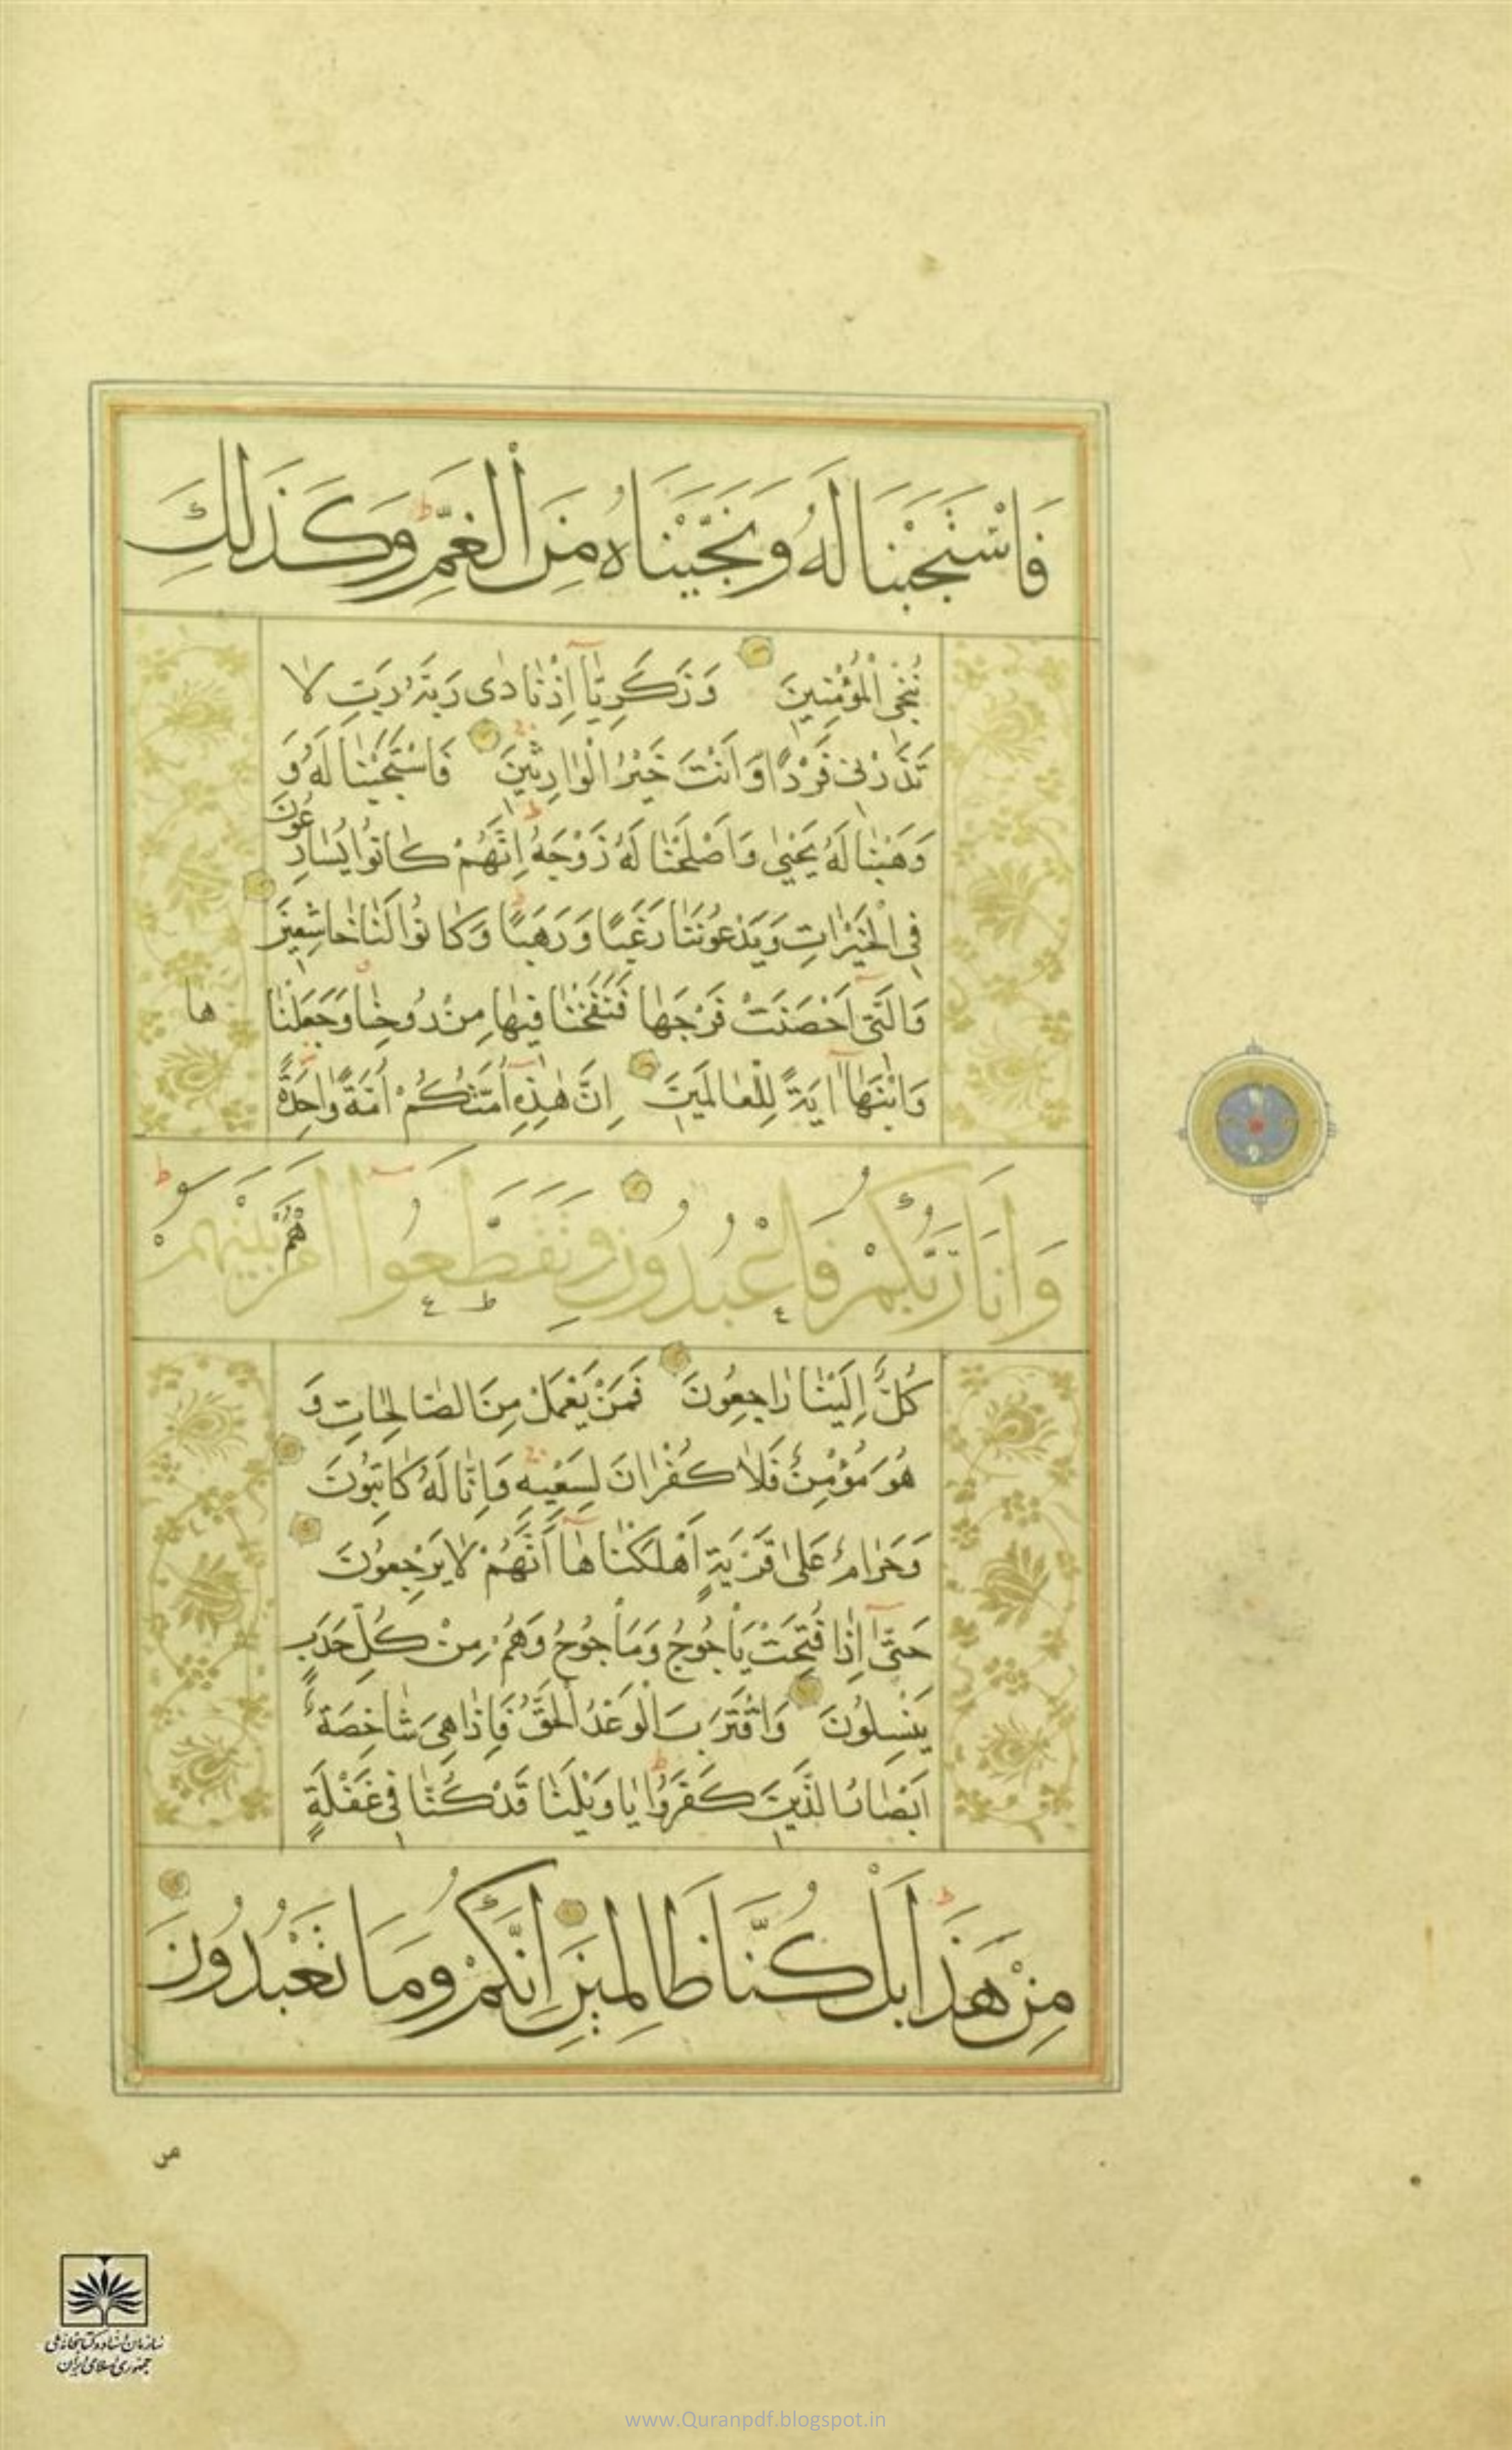 فَاسْتَجَبْنَا لَهُ وَنَجَّيْنَاهُ مِنَ الْغَمِّ وَكَذَلِكَ
نُنْجِي الْمُؤْمِنِينَ وَزَكَرِيَّا إِذْ نَادٰى رَبَّهُ رَبِّ لَا
تَذَرْنِي فَرْدًا وَأَنْتَ خَيْرُ الْوَارِثِينَ فَاسْتَجَبْنَا لَهُ وَ
وَهَبْنَا لَهُ يَحْيٰى وَأَصْلَحْنَا لَهُ زَوْجَهُ إِنَّهُمْ كَانُوا يُسَارِعُونَ
فِي الْخَيْرَاتِ وَيَدْعُونَنَا رَغَبًا وَرَهَبًا وَكَانُوا لَنَا خَاشِعِينَ
وَالَّتِي أَحْصَنَتْ فَرْجَهَا فَنَفَخْنَا فِيهَا مِنْ رُوحِنَا وَجَعَلْنَا ها
وَابْنَهَا آيَةً لِلْعَالَمِينَ إِنَّ هٰذِهِ أُمَّتُكُمْ أُمَّةً وَاحِدَةً
وَأَنَا رَبُّكُمْ فَاعْبُدُونِ وَتَقَطَّعُوا أَمْرَهُمْ بَيْنَهُمْ
كُلٌّ إِلَيْنَا رَاجِعُونَ فَمَنْ يَعْمَلْ مِنَ الصَّالِحَاتِ وَ
هُوَ مُؤْمِنٌ فَلَا كُفْرَانَ لِسَعْيِهِ وَإِنَّا لَهُ كَاتِبُونَ
وَحَرَامٌ عَلٰى قَرْيَةٍ أَهْلَكْنَاهَا أَنَّهُمْ لَا يَرْجِعُونَ
حَتّٰى إِذَا فُتِحَتْ يَأْجُوجُ وَمَأْجُوجُ وَهُمْ مِنْ كُلِّ حَدَبٍ
يَنْسِلُونَ وَاقْتَرَبَ الْوَعْدُ الْحَقُّ فَإِذَا هِيَ شَاخِصَةٌ
أَبْصَارُ الَّذِينَ كَفَرُوا يَا وَيْلَنَا قَدْ كُنَّا فِي غَفْلَةٍ
مِنْ هَذَا بَلْ كُنَّا ظَالِمِينَ إِنَّكُمْ وَمَا تَعْبُدُونَ
من
سازمان اسناد و کتابخانه ملی
جمهوری اسلامی ایران
www.Quranpdf.blogspot.in